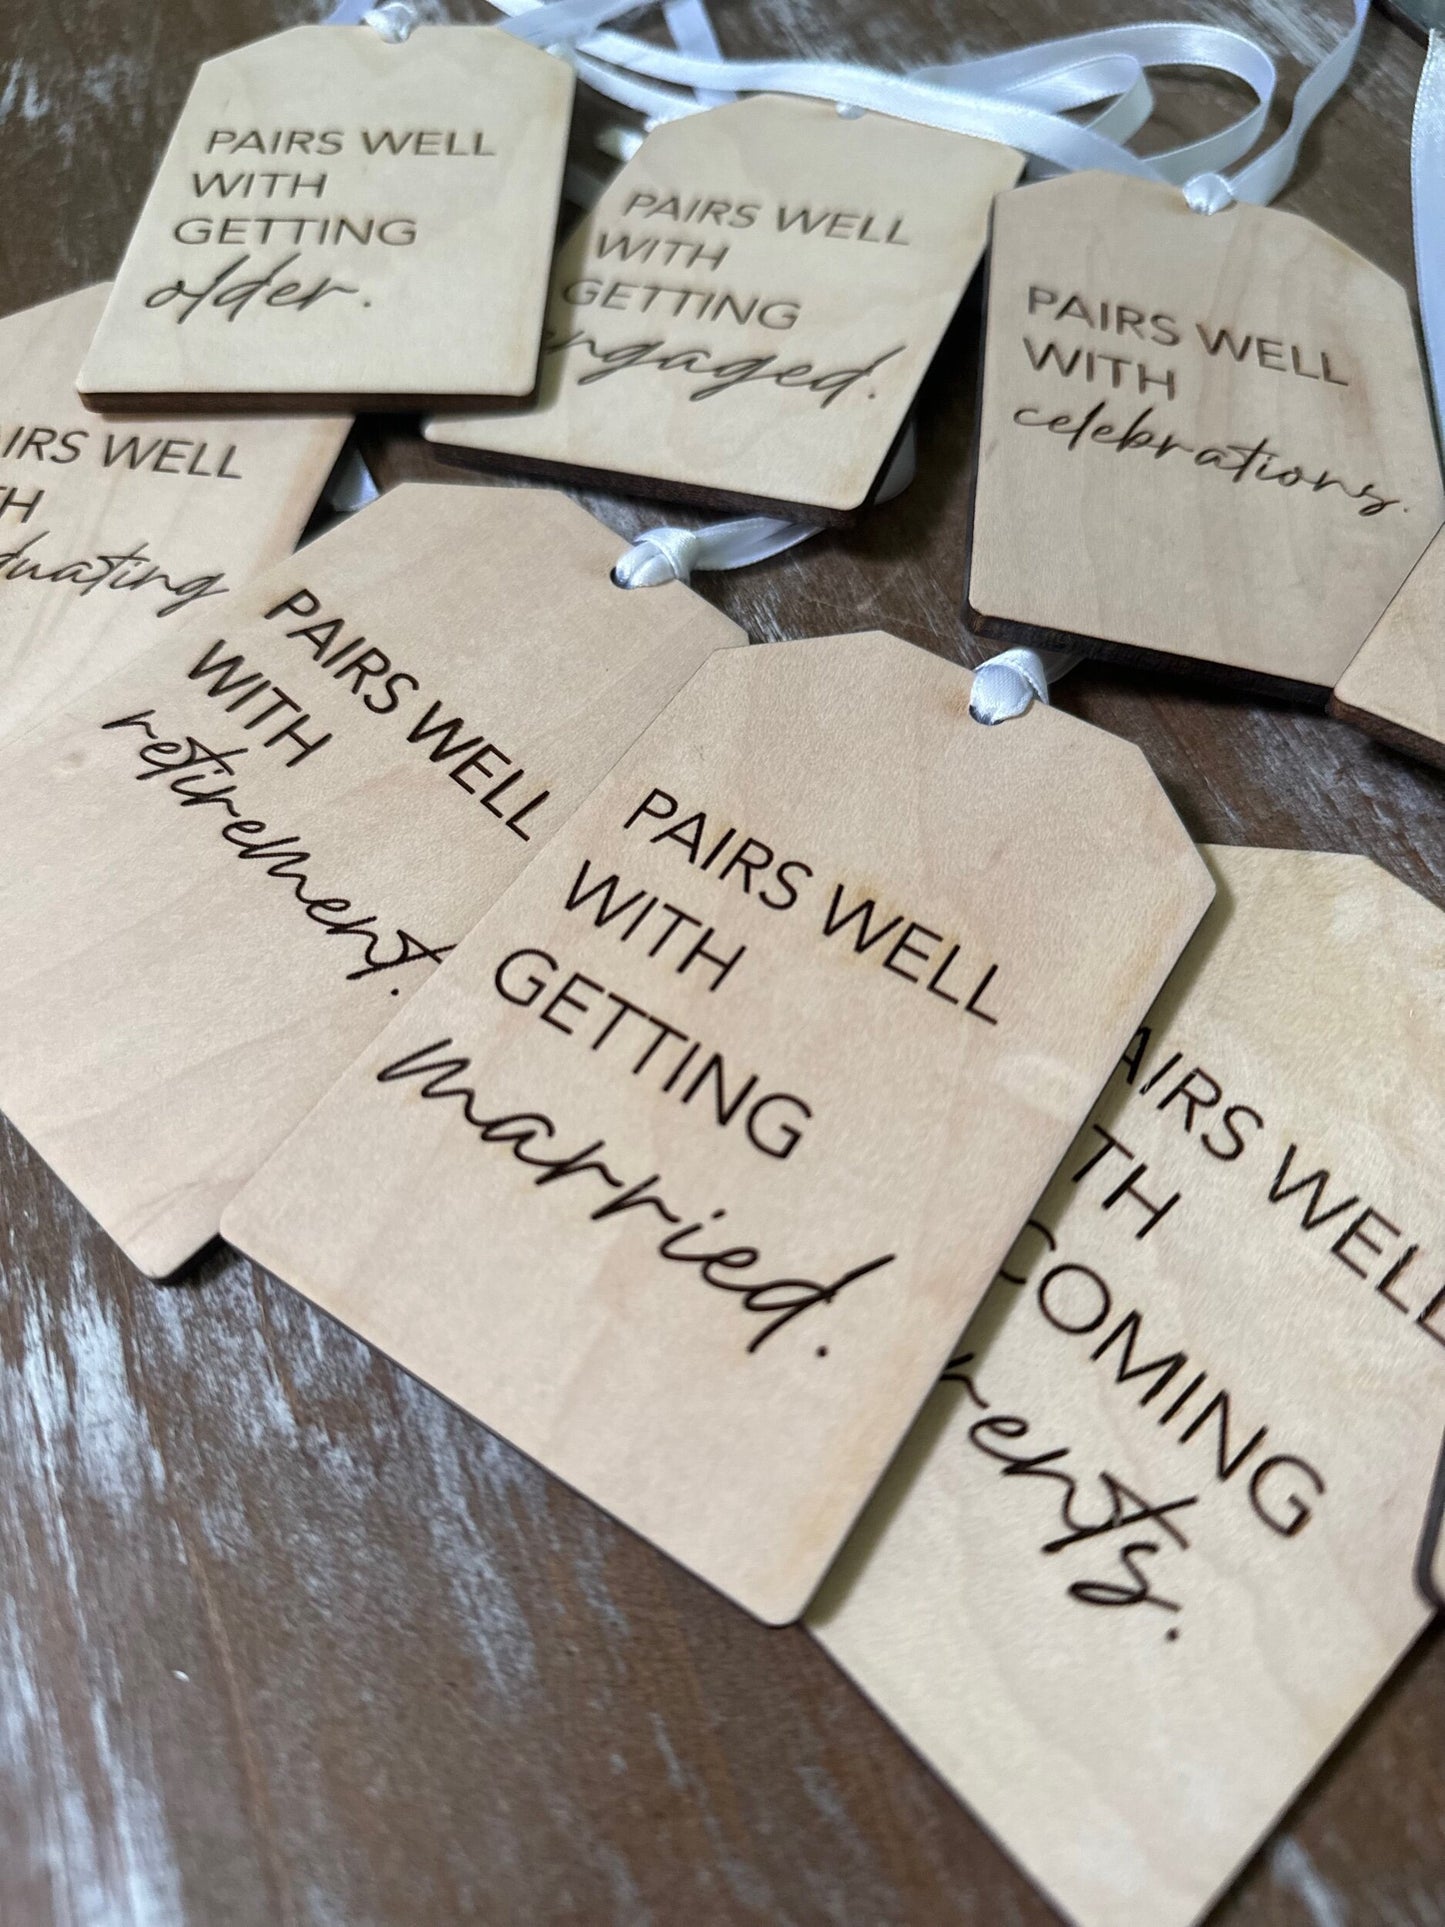 PAIRS WELL
WITH
GETTING
older.
PAIRS WELL
WITH
GETTING
engaged.
PAIRS WELL
WITH
celebrations.
WELL
PAIRS WELL
WITH
retirement.
PAIRS WELL
WITH
GETTING
married.
WELL